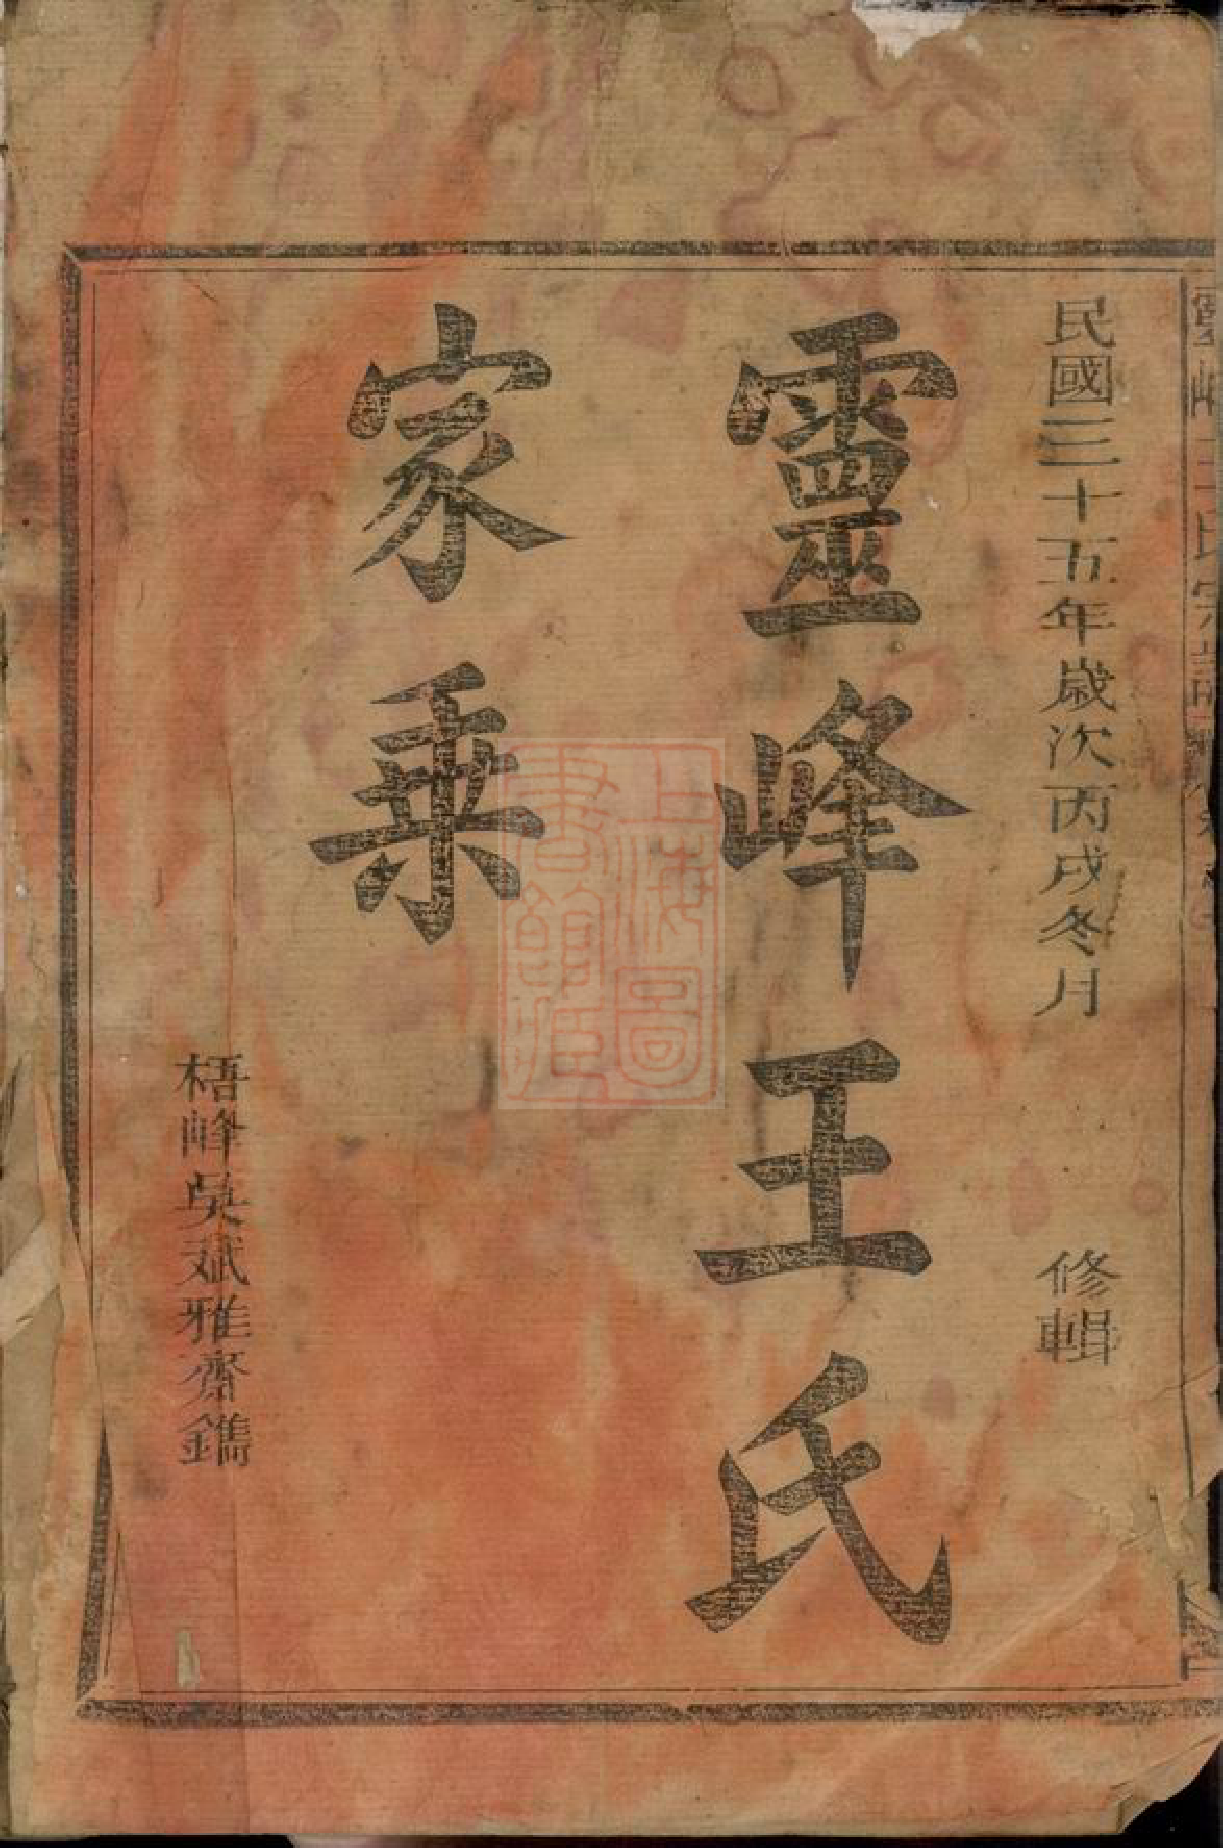 民國三十五年歲次丙戌冬月 修輯
靈峰王氏
家乘
梧峰吳斌雅齋鐫
上海圖
書館藏